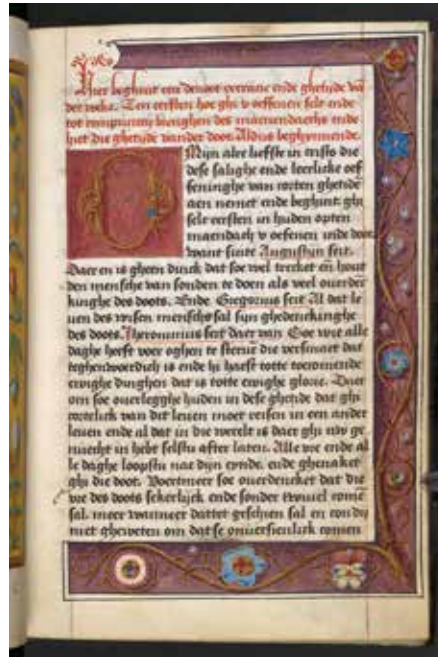 Hier beghint een devoet exercitie ende ghetijde vā
der weke. Ten eersten hoe ghi v oeffenen selt ende
tot compunctien brenghen des maenendaechs ende
hiet die ghetijde vander doot. Aldus beghinnende.
O Mijn alre liefste in cristo die
dese salighe ende leerlicke oef
feninghe van corten ghetidē
aen nemet ende beghint ghi
selt eersten in huden opten
maendach v oefenen inde doot
want sinte Augustijn seit.
Daer en is gheen dinck dat soe wel trecket eñ hout
den mensche van sonden te doen als veel ouerden
kinghe des doots. Ende Gregorius seit Al dat le
uen des wisen menschs sal sijn ghedenckinghe
des doots. Jheronimus seit daer van Soe wie alle
daghe heeft voer oghen te sterue die versmaet dat
teghenwoerdich is ende hi haest totte toecomende
ewighe dinghen dat is totte ewighe glorie. Daer
om soe ouerlegghe huden in dese ghetide dat ghi
cortelick van dit leuen moet reisen in een ander
leuen ende al dat in die werelt is daer ghi nv ge
nuecht in hebt selstu after laten. Alle vre ende al
le daghe loopstu nae dijn eynde. ende ghenaket
ghi die doot. Voertmeer soe ouerdencket dat die
vre des doots sekerlijck ende sonder twiuel comē
sal. meer wanneer dattet geschien sal en condi
niet gheweten om datse onuersienlick comen